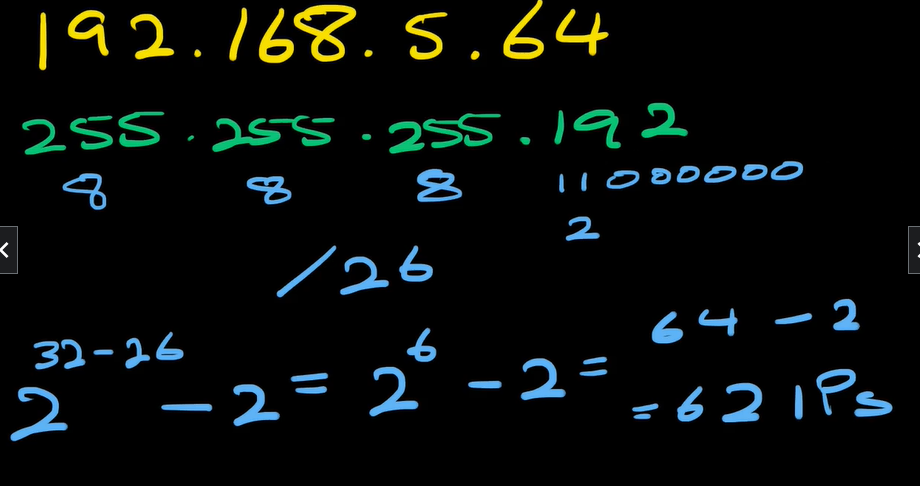 192.168.5.64
255.255.255.192
8 8 8 11000000
2
/26
2^(32-26) - 2 = 2^6 - 2 = 64 - 2
= 62 IPs